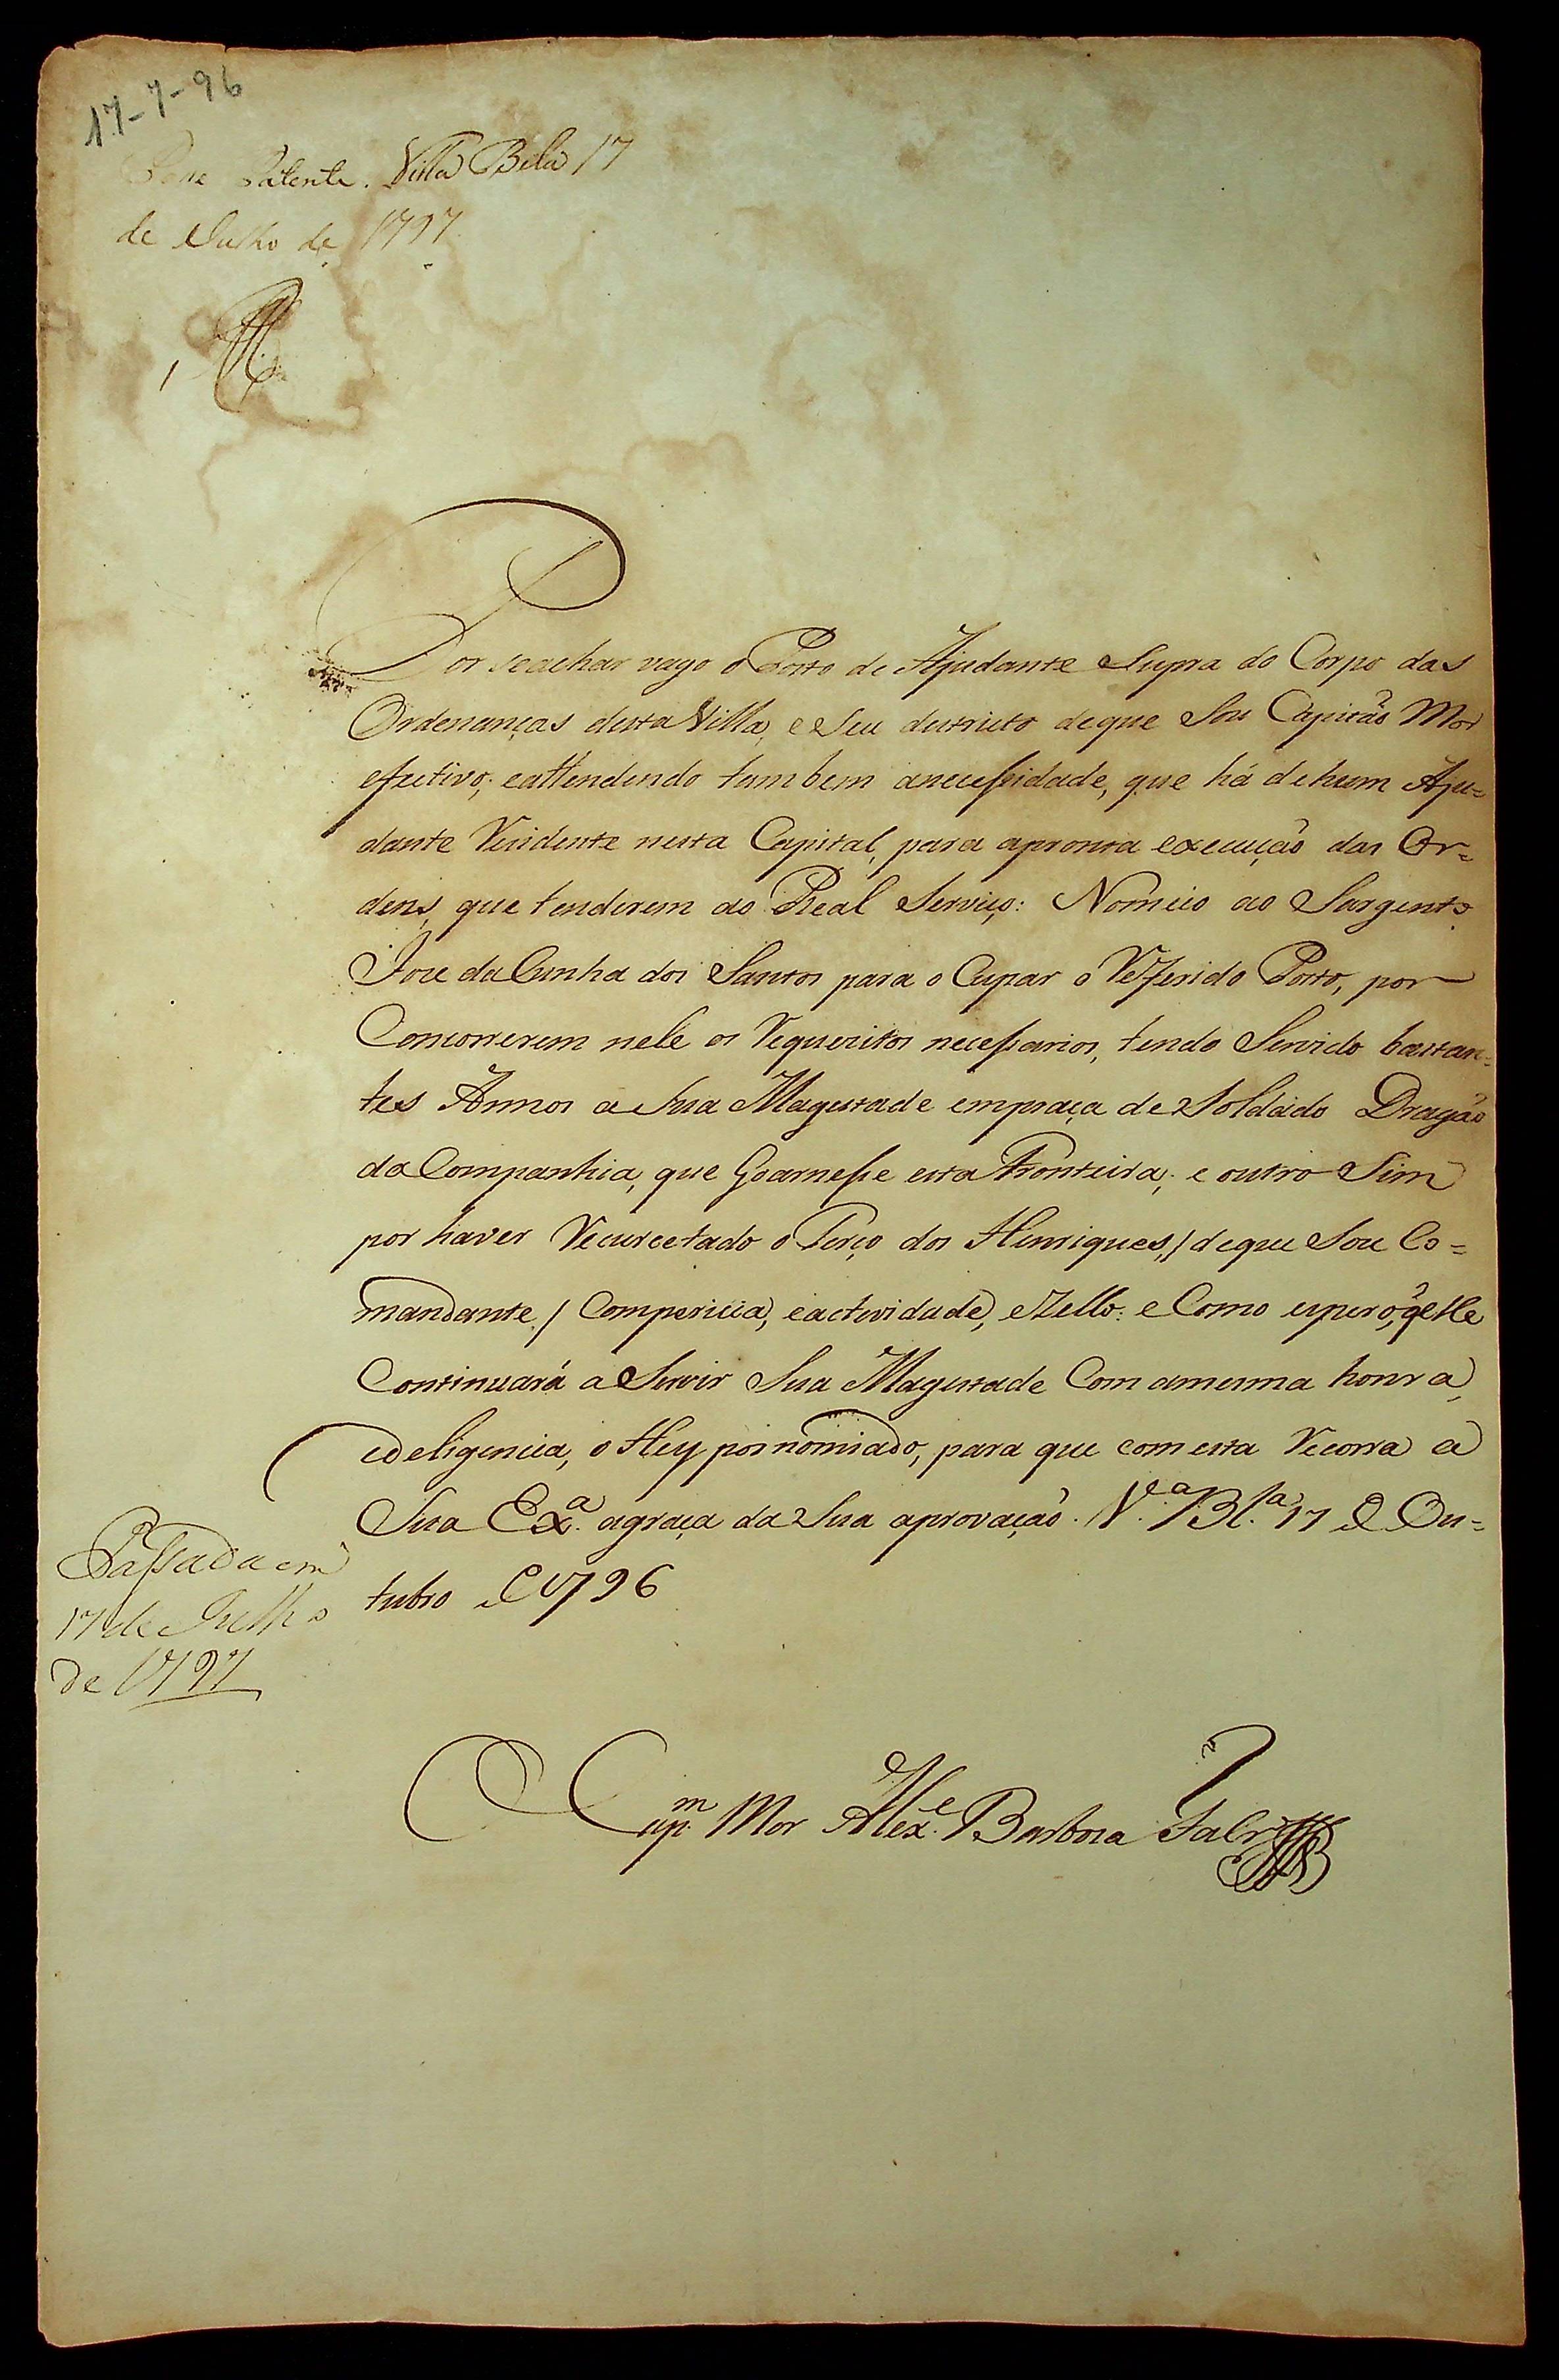 17-7-96
Passe Patente. Villa Bela 17
de Julho de 1797
Por seachar vago o Posto de Ajudante Supra do Corpo das
Ordenanças desta Villa, e Seu destricto deque Sou Capitão Mor
efectivo; eattendendo tambem anecessidade, que há dehum Aju=
dante Rezidente nesta Capital, para apronta execução das Or=
dens, que tenderem ao Real Serviço: Nomeio ao Sargento
Joze da Cunha dos Santos para o Cupar o Refferido Posto, por
Concorrerem nele os Requezitos necessarios, tendo Servido bastan=
tes Annos a Sua Magestade empraça de Soldado Dragão
da Companhia, que Goarnesse esta Fronteira; e outro Sim
por haver exercetado o Terço dos Henriques, / deque Sou Co=
mandante / Compericia, eactividade, eZello: e Como espero, q̃ elle
Continuará a Servir Sua Magestade Com amesma honra,
edeligencia, o Hey por nomiado, para que com esta Recorra a
Sua Exª. agraça da Sua aprovação. Vª. Blª. 17 de Ou=
tubro de 1796
Passada em
17 de Julho
de 1797
Capm. Mor Alexe. Barbosa